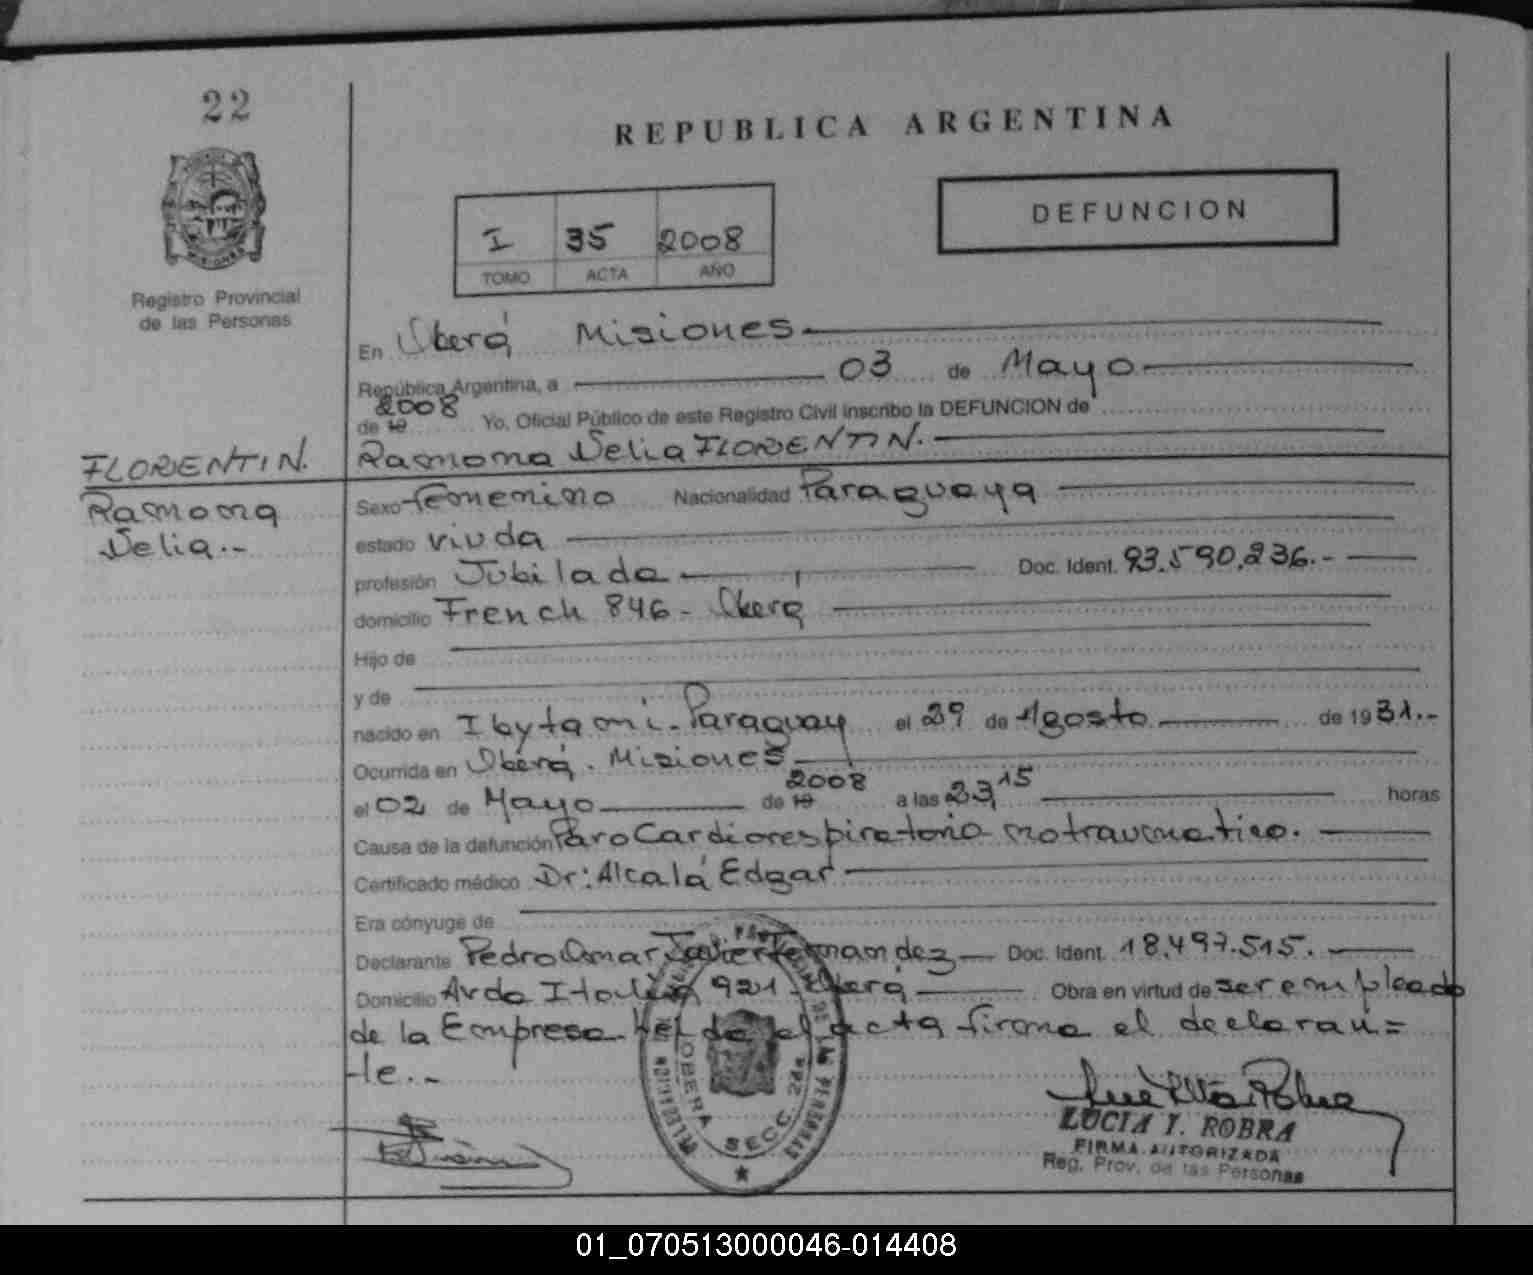 22
REPUBLICA ARGENTINA
DEFUNCION
I 35 2008
TOMO ACTA AÑO
MISIONES
Registro Provincial
de las Personas
En Oberá Misiones
República Argentina, a 03 de Mayo
2008
de 19 Yo, Oficial Público de este Registro Civil inscribo la DEFUNCION de
Ramona Delia FLORENTIN.
FLORENTIN.
Ramona
Delia.-
Sexo femenino Nacionalidad Paraguaya
estado viuda
profesión Jubilada Doc. Ident. 93.590.236.-
domicilio French 846 - Oberá
Hijo de
y de
nacido en Ibytami - Paraguay el 29 de Agosto de 1931.-
Ocurrida en Oberá. Misiones
2008
el 02 de Mayo de 19 a las 23,15 horas
Causa de la defunción Paro Cardiorespiratorio no traumatico.
Certificado médico Dr: Alcalá Edgar
Era cónyuge de
Declarante Pedro Omar Javier Fernandez Doc. Ident. 18.497.515.
Domicilio Avda Italia 921 - Oberá Obra en virtud de ser empleado
de la Empresa. Leída el acta firma el declaran=
te.-
OBERA SECC. 2da
DE LAS PERSONAS
LUCIA I. ROBRA
FIRMA AUTORIZADA
Reg. Prov. de las Personas
01_070513000046-014408